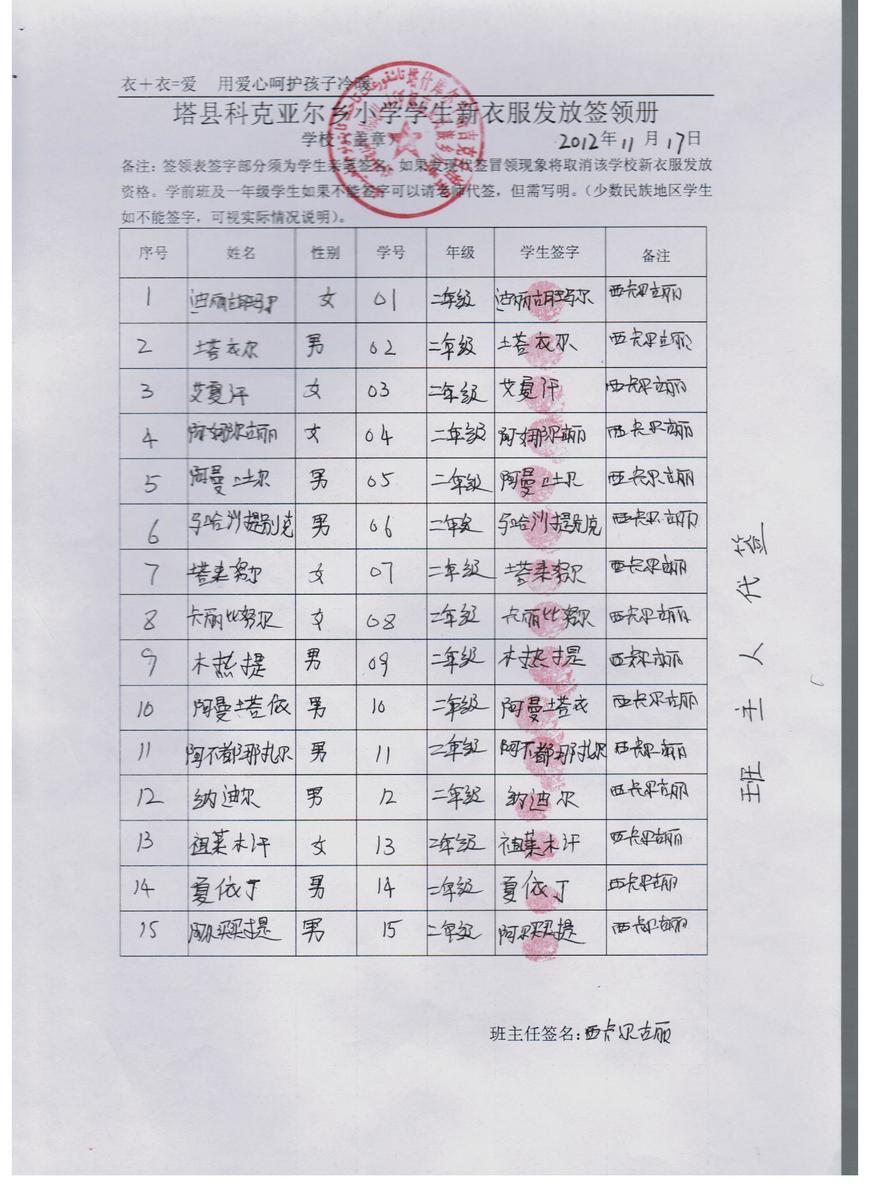 衣+衣=爱 用爱心呵护孩子冷暖
塔县科克亚尔乡小学学生新衣服发放签领册
学校（盖章） 2012年11月17日
备注：签领表签字部分须为学生亲笔签名，如果发现代签冒领现象将取消该学校新衣服发放
资格。学前班及一年级学生如果不能签字可以请老师代签，但需写明。（少数民族地区学生
如不能签字，可视实际情况说明）。
序号 姓名 性别 学号 年级 学生签字 备注
1 迪丽胡玛尔 女 01 二年级 迪丽胡玛尔 西卡尔古丽
2 塔衣尔 男 02 二年级 塔衣尔 西卡尔古丽
3 艾夏汗 女 03 二年级 艾夏汗 西卡尔古丽
4 阿娜尔古丽 女 04 二年级 阿娜尔古丽 西卡尔古丽
5 阿曼卫士尔 男 05 二年级 阿曼卫士尔 西卡尔古丽
6 马哈沙提别克 男 06 二年级 马哈沙提别克 西卡尔古丽
7 塔来努尔 女 07 二年级 塔来努尔 西卡尔古丽
8 卡丽比努尔 女 08 二年级 卡丽比努尔 西卡尔古丽
9 木热提 男 09 二年级 木热提 西卡尔古丽
10 阿曼塔依 男 10 二年级 阿曼塔衣 西卡尔古丽
11 阿不都那扎尔 男 11 二年级 阿不都那扎尔 西卡尔古丽
12 纳迪尔 男 12 二年级 纳迪尔 西卡尔古丽
13 祖莱木汗 女 13 二年级 祖莱木汗 西卡尔古丽
14 夏依丁 男 14 二年级 夏依丁 西卡尔古丽
15 阿尔买买提 男 15 二年级 阿尔买买提 西卡尔古丽
班主任签名：西卡尔古丽
班主人代签